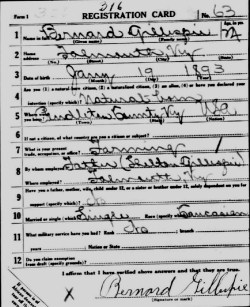 Form 1 316 No. 63
REGISTRATION CARD
1 Name in full Bernard Gillespie Age, in yrs.
(Given name) (Family name)
2 Home address Falmouth Ky
(No.) (Street) (City) (State)
3 Date of birth Jany 19 1893
(Month) (Day) (Year)
4 Are you (1) a natural-born citizen, (2) a naturalized citizen, (3) an alien, (4) or have you declared your intention (specify which)? Natural born
5 Where were you born? Pendleton County Ky USA
(Town) (State) (Nation)
6 If not a citizen, of what country are you a citizen or subject?
7 What is your present trade, occupation, or office? Farming
8 By whom employed? Father (Skelton Gillespie)
Where employed? Falmouth Ky
9 Have you a father, mother, wife, child under 12, or a sister or brother under 12, solely dependent on you for support (specify which)? No
10 Married or single (which)? Single Race (specify which)? Caucasian
11 What military service have you had? Rank No branch
years Nation or State
12 Do you claim exemption from draft (specify grounds)?
I affirm that I have verified above answers and that they are true.
X Bernard Gillespie